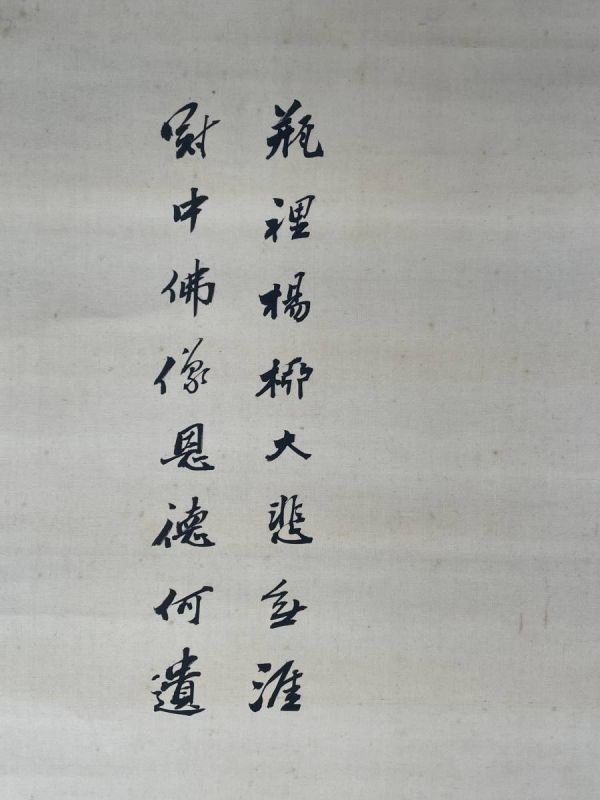 瓶裡楊柳大悲無涯
冠中佛像恩德何遺